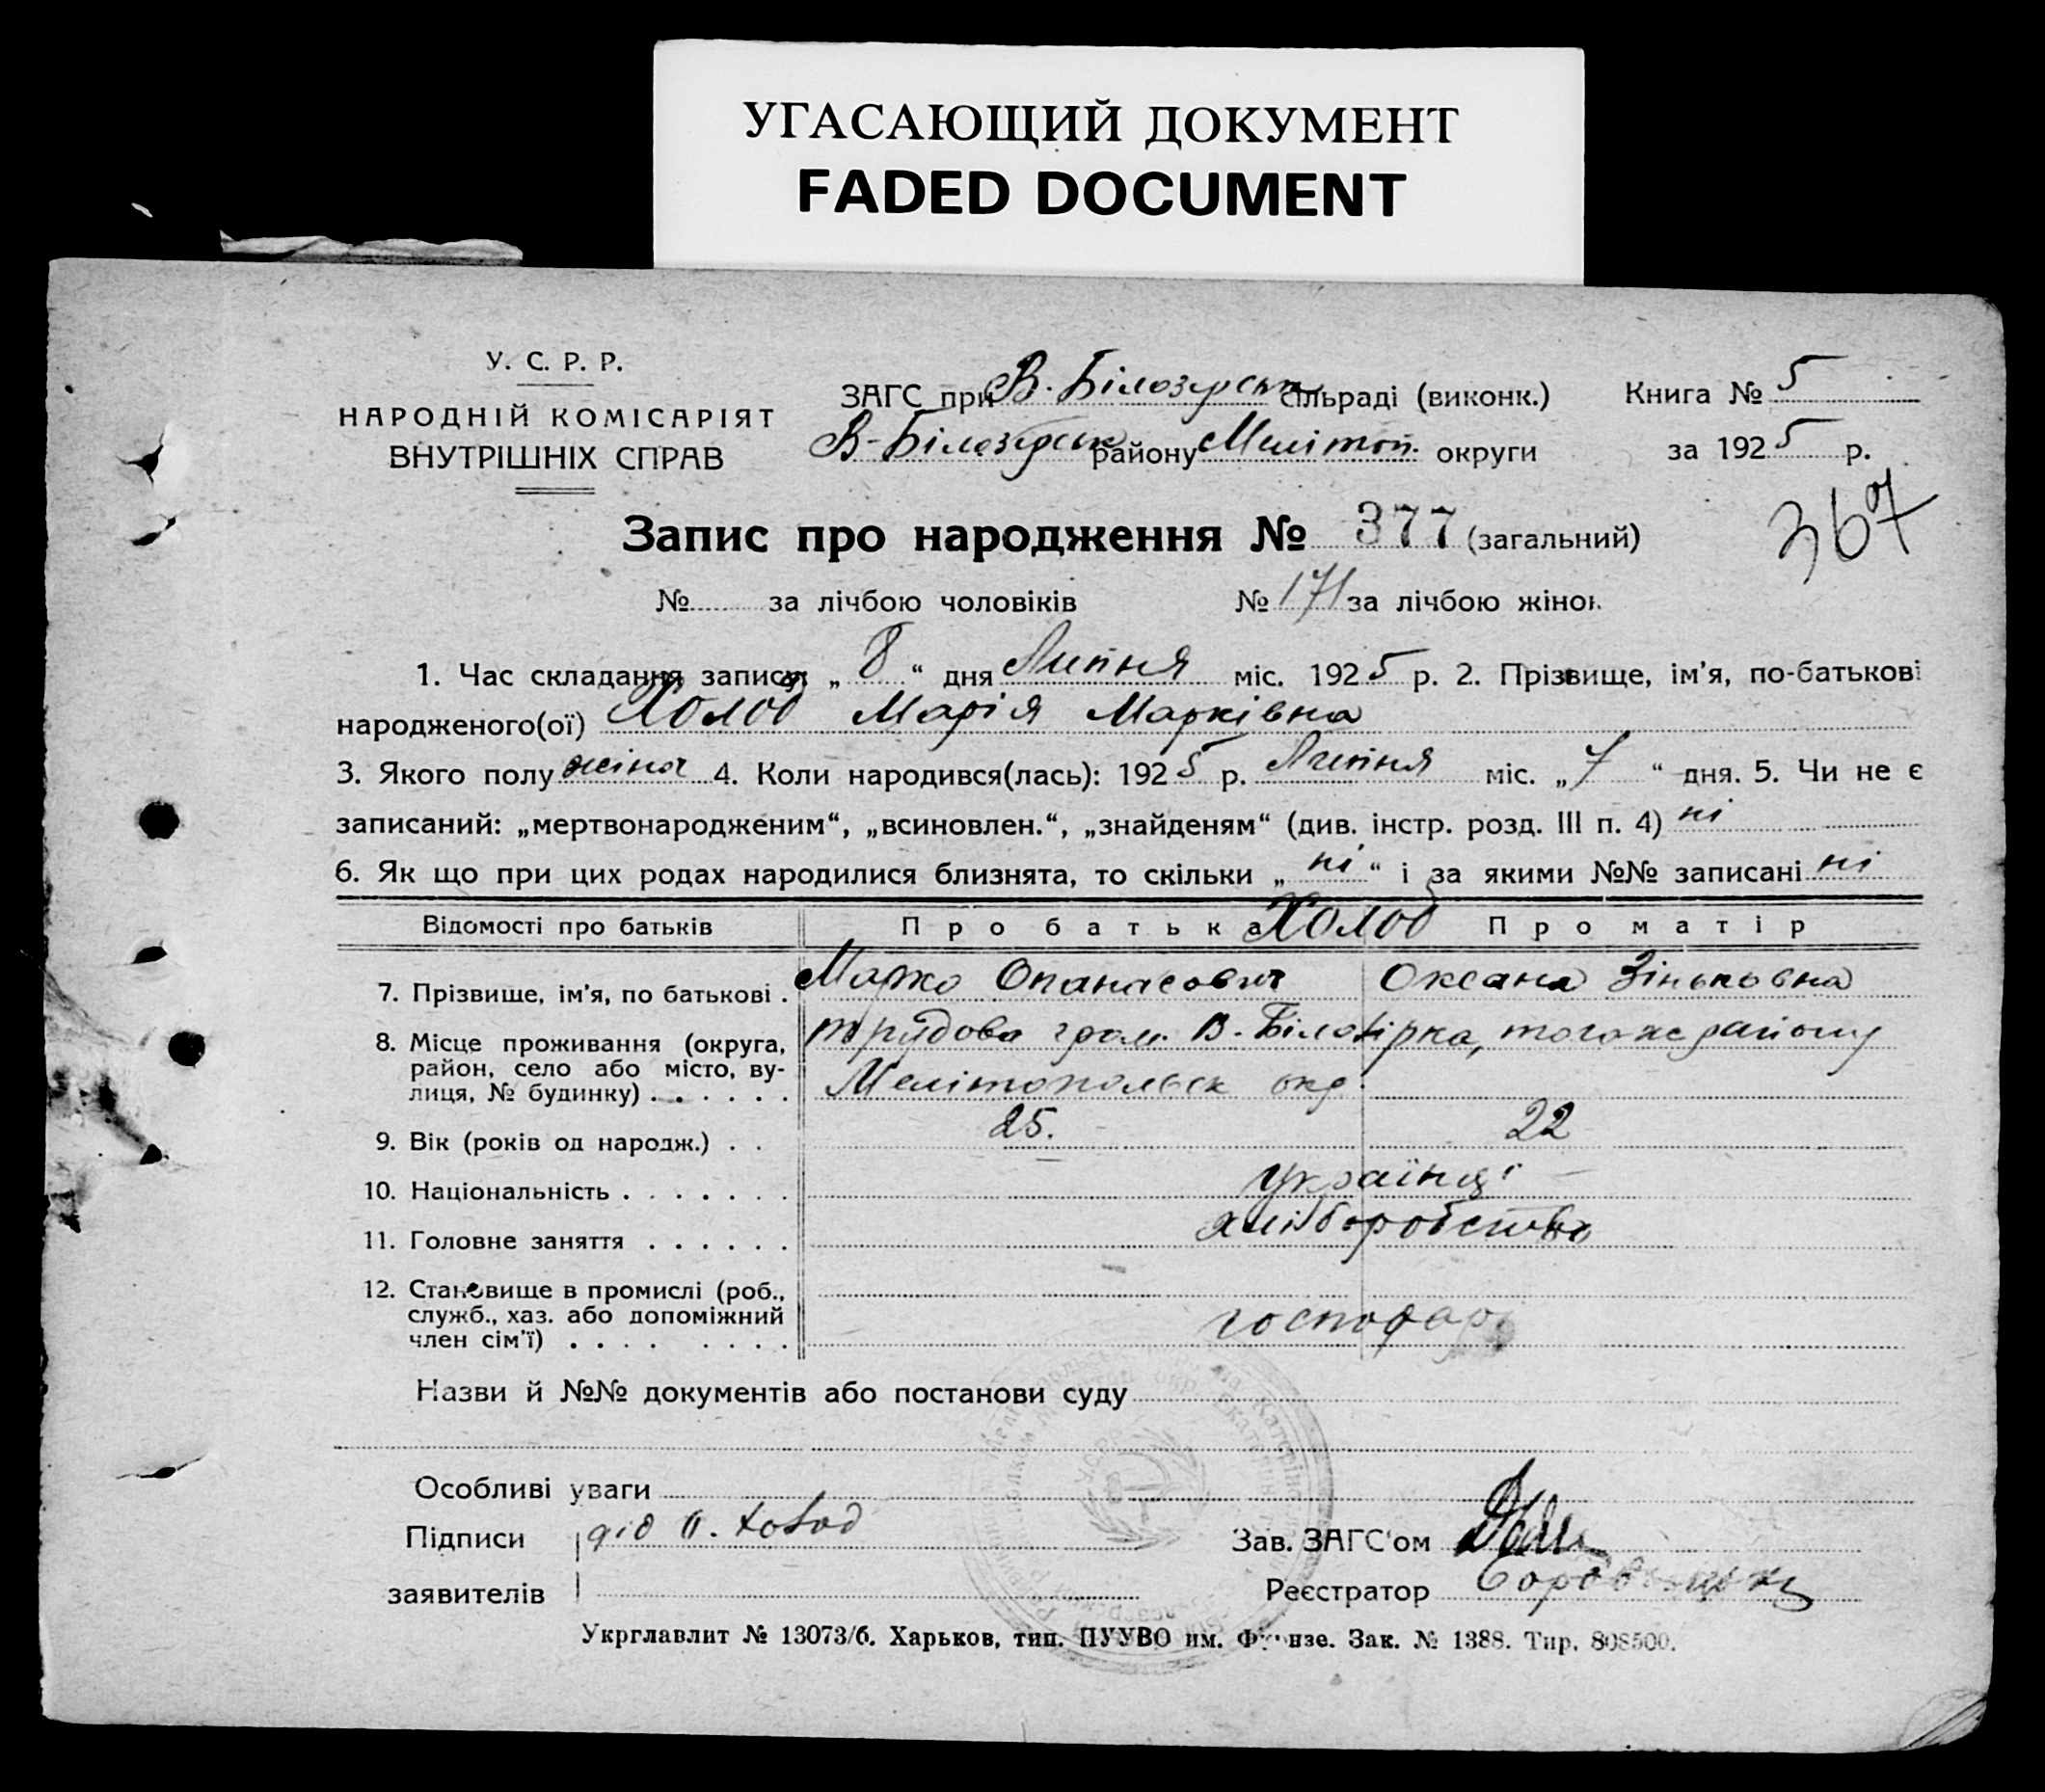 УГАСАЮЩИЙ ДОКУМЕНТ
FADED DOCUMENT
У. С. Р. Р.
НАРОДНІЙ КОМІСАРІЯТ
ВНУТРІШНІХ СПРАВ
ЗАГС при В. Білозерськ сільраді (виконк.) Книга № 5
В-Білозерськ району Мелітоп. округи за 1925 р.
367
Запис про народження № 377 (загальний)
№ за лічбою чоловіків № 171 за лічбою жінок
1. Час складання запису „ 8 “ дня Липня міс. 1925 р. 2. Прізвище, ім’я, по-батькові
народженого(ої) Холод Марія Марківна
3. Якого полу жіноч 4. Коли народився(лась): 1925 р. Липня міс. „ 7 “ дня. 5. Чи не є
записаний: „мертвонародженим“, „всиновлен.“, „знайденям“ (див. інстр. розд. III п. 4) ні
6. Як що при цих родах народилися близнята, то скільки „ ні “ і за якими №№ записані ні
Відомості про батьків Про батька Холод Про матір
7. Прізвище, ім’я, по батькові . Марко Опанасович Оксана Зіньковна
8. Місце проживання (округа, трудова гром. В-Білозірка, тогож району
район, село або місто, ву-
лиця, № будинку) . . . . . . Мелітопольск окр.
9. Вік (років од народж.) . . 25. 22
10. Національність . . . . . . . українці
11. Головне заняття . . . . . . хліборобство
12. Становище в промислі (роб.,
служб., хаз. або допоміжний
член сім’ї) . . . . . . . . господар
Назви й №№ документів або постанови суду
Особливі уваги
Підписи дід О. Холод Зав. ЗАГС’ом
заявителів Реєстратор
Укрглавлит № 13073/б. Харьков, тип. ПУУВО им. Фрунзе. Зак. № 1388. Тир. 808500.